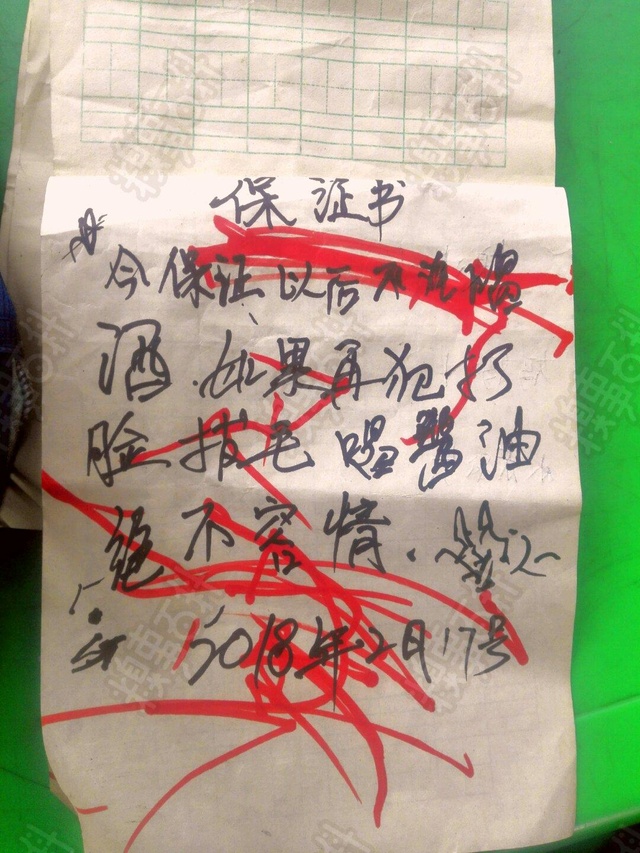 保证书
今保证以后不喝
酒.如果再犯打
脸拔毛喝酱油
绝不容情.
2018年2月17号